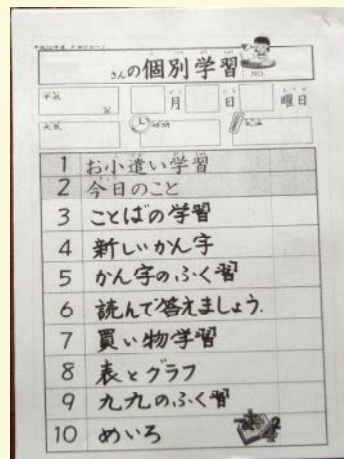 さんの個別学習
NO.
平成 年 月 日 曜日
天気
1 お小遣い学習
2 今日のこと
3 ことばの学習
4 新しいかん字
5 かん字のふく習
6 読んで答えましょう.
7 買い物学習
8 表とグラフ
9 九九のふく習
10 めいろ